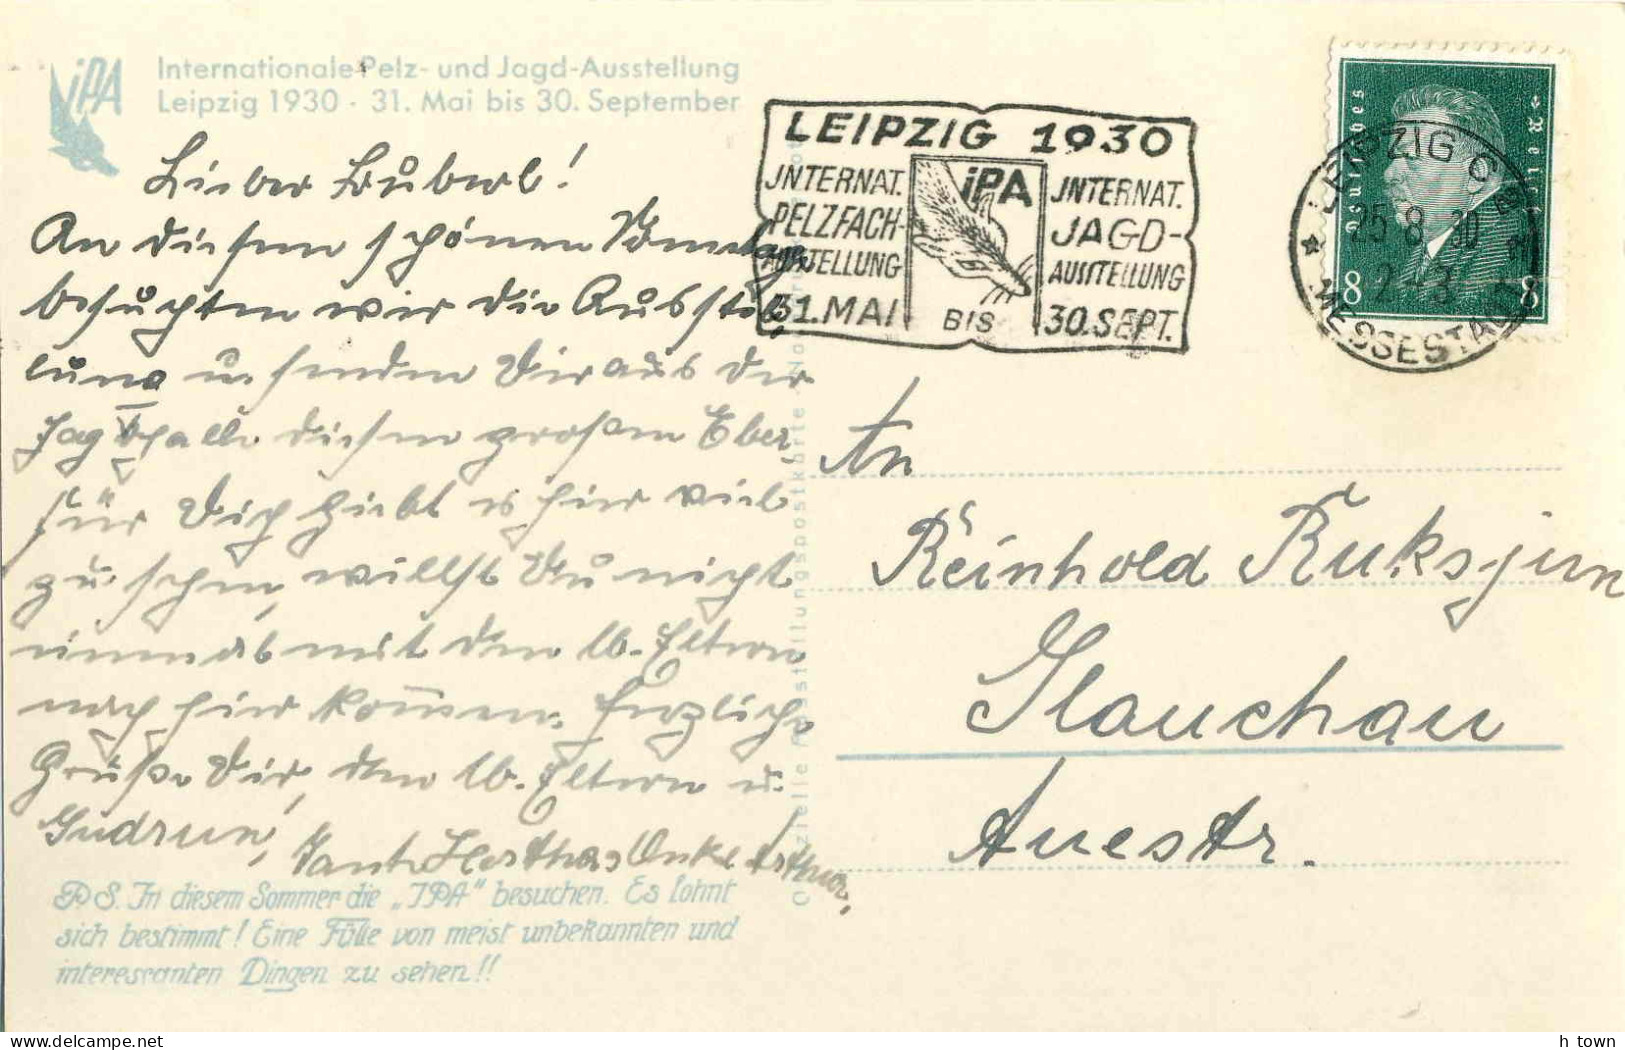 iPA
Internationale Pelz- und Jagd-Ausstellung
Leipzig 1930 · 31. Mai bis 30. September
Lieber
An diesem schönen Sonntag
besuchten wir die Ausstel
lung u. senden Dir aus der
Jagdhalle diesen großen Eber,
für Dich giebt es hier viel
zu sehen, willst Du nicht
einmal mit den lb. Eltern
nach hier kommen. Herzliche
Grüße Dir, den lb. Eltern u.
Gudrun, Tante Hertha Onkel Arthur.
P.S. In diesem Sommer die „IPA" besuchen. Es lohnt
sich bestimmt! Eine Fülle von meist unbekannten und
interessanten Dingen zu sehen!!
LEIPZIG 1930
JNTERNAT.
PELZFACH-
AUSSTELLUNG
31. MAI
iPA
BIS
JNTERNAT.
JAGD-
AUSSTELLUNG
30. SEPT.
Deutsches Reich
8 8
LEIPZIG C 2
25.8.30
2-3
MESSESTADT
An
Reinhold
Glauchau
Auestr.
h_town